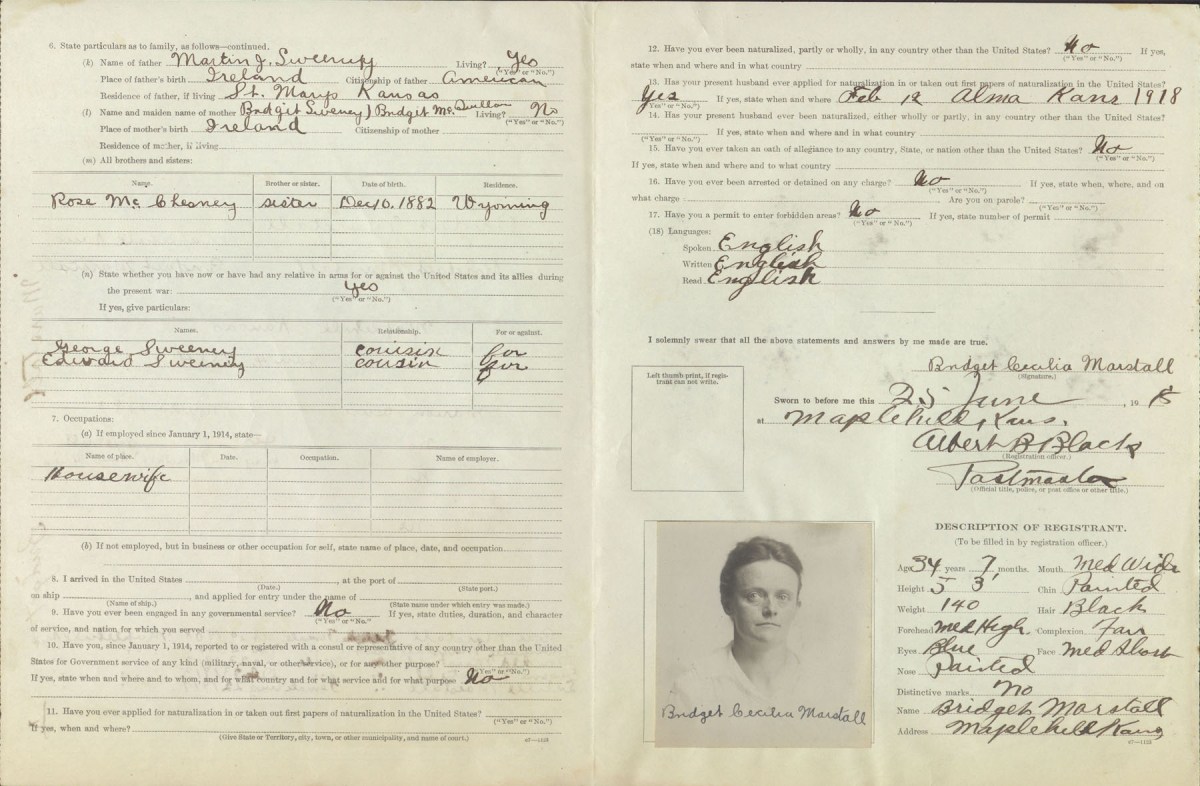 6. State particulars as to family, as follows—continued.
(k) Name of father Martin J. Sweeney Living? Yes
("Yes" or "No.")
Place of father's birth Ireland Citizenship of father American
Residence of father, if living St. Marys Kansas
(l) Name and maiden name of mother Bridget Sweeney) Bridget Mc. Living? No
("Yes" or "No.")
Place of mother's birth Ireland Citizenship of mother
Residence of mother, if living
(m) All brothers and sisters:
Name. Brother or sister. Date of birth. Residence.
Rose Mc Chesney sister Dec 10. 1882 Wyoming
(n) State whether you have now or have had any relative in arms for or against the United States and its allies during
the present war: Yes
("Yes" or "No.")
If yes, give particulars:
Names. Relationship. For or against.
George Sweeney cousin for
Edward Sweeney cousin for
7. Occupations:
(a) If employed since January 1, 1914, state—
Name of place. Date. Occupation. Name of employer.
Housewife
(b) If not employed, but in business or other occupation for self, state name of place, date, and occupation
8. I arrived in the United States , at the port of
(Date.) (State port.)
on ship , and applied for entry under the name of
(Name of ship.) (State name under which entry was made.)
9. Have you ever been engaged in any governmental service? No If yes, state duties, duration, and character
("Yes" or "No.")
of service, and nation for which you served
10. Have you, since January 1, 1914, reported to or registered with a consul or representative of any country other than the United
States for Government service of any kind (military, naval, or other service), or for any other purpose?
("Yes" or "No.")
If yes, state when and where and to whom, and for what country and for what service and for what purpose No
11. Have you ever applied for naturalization in or taken out first papers of naturalization in the United States?
("Yes" or "No.")
If yes, when and where?
(Give State or Territory, city, town, or other municipality, and name of court.) 67—1153
12. Have you ever been naturalized, partly or wholly, in any country other than the United States? No If yes,
("Yes" or "No.")
state when and where and in what country
13. Has your present husband ever applied for naturalization in or taken out first papers of naturalization in the United States?
Yes If yes, state when and where Feb 12 Alma Kans 1918
("Yes" or "No.")
14. Has your present husband ever been naturalized, either wholly or partly, in any country other than the United States?
If yes, state when and where and in what country
("Yes" or "No.")
15. Have you ever taken an oath of allegiance to any country, State, or nation other than the United States? No
("Yes" or "No.")
If yes, state when and where and to what country
16. Have you ever been arrested or detained on any charge? No If yes, state when, where, and on
("Yes" or "No.")
what charge Are you on parole?
("Yes" or "No.")
17. Have you a permit to enter forbidden areas? No If yes, state number of permit
("Yes" or "No.")
(18) Languages:
Spoken English
Written English
Read English
I solemnly swear that all the above statements and answers by me made are true.
Left thumb print, if regis-
trant can not write.
Bridget Cecilia Marstall
(Signature.)
Sworn to before me this 25 June , 19 18
at Maplehill, Kans.
Albert B Black
(Registration officer.)
Postmaster
(Official title, police, or post office or other title.)
Bridget Cecilia Marstall
DESCRIPTION OF REGISTRANT.
(To be filled in by registration officer.)
Age 34 years 7 months. Mouth Med Wide
Height 5 3' Chin Pointed
Weight 140 Hair Black
Forehead Med High Complexion Fair
Eyes Blue Face Med Short
Nose Pointed
Distinctive marks No
Name Bridget Marstall
Address Maplehill Kans
67—1153